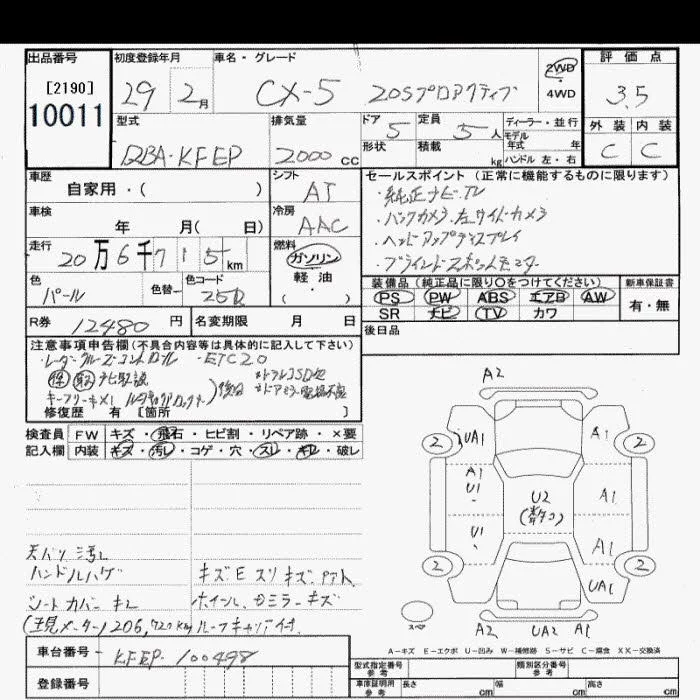 出品番号 初度登録年月 車名・グレード 評価点
[2190]
10011
29 2月 CX-5 20Sプロアクティブ 2WD 4WD 3.5
型式 排気量 ドア 定員 ディーラー・並行 外装 内装
DBA-KFEP 2000cc 5 5人 モデル年式 年 C C
形状 積載 kg ハンドル 左・右
車歴 シフト セールスポイント(正常に機能するものに限ります)
自家用・( ) AT ・純正ナビ・TV
車検 冷房 ・バックカメラ、左サイドカメラ
年 月( 日) AAC ・ヘッドアップディスプレイ
走行 燃料 ・ブラインドスポットモニター
20万6千715km ガソリン
軽油
( )
色 色替 カラーコード 装備品(純正品に限り〇をつけてください) 新車保証書
パール 25D PS PW ABS エアB AW 有・無
SR ナビ TV カワ
R券 12480円 名変期限 月 日 後日品
注意事項申告欄(不具合内容等は具体的に記入して下さい)
・レーダークルーズコントロール ・ETC2.0
修復歴 有 [箇所 ]
検査員 FW キズ・飛石・ヒビ割・リペア跡・×要
記入欄 内装 キズ・汚レ・コゲ・穴・スレ・キレ・破レ
天バリ汚レ
ハンドルハゲ キズEスリキズ
シートカバーキレ ホイール、ドミラーキズ
メーター)206,720km ルーフキャリア付
車台番号 KFEP-100498
登録番号
A2
2 UA1 A1 2
A1
U1 U2 A1
U1 A1
2 UA1 2
スペア A2 UA2 A1
A-キズ E-エクボ U-凹み W-補修跡 S-サビ C-腐食 XX-交換済
型式指定番号 類別区分番号
参考 参考
車庫証明用 長さ 幅 高さ
参考 cm cm cm